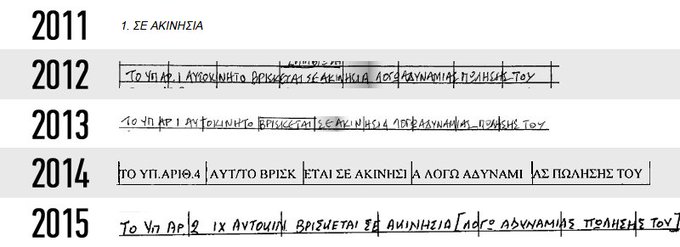 2011 1. ΣΕ ΑΚΙΝΗΣΙΑ
2012 ΤΟ ΥΠ ΑΡ. 1 ΑΥΤΟΚΙΝΗΤΟ ΒΡΙΣΚΕΤΑΙ ΣΕ ΑΚΙΝΗΣΙΑ ΛΟΓΩ ΑΔΥΝΑΜΙΑΣ ΠΩΛΗΣΗΣ ΤΟΥ
2013 ΤΟ ΥΠ ΑΡ 1 ΑΥΤΟΚΙΝΗΤΟ ΒΡΙΣΚΕΤΑΙ ΣΕ ΑΚΙΝΗΣΙΑ ΛΟΓΩ ΑΔΥΝΑΜΙΑΣ ΠΩΛΗΣΗΣ ΤΟΥ
2014 ΤΟ ΥΠ.ΑΡΙΘ.4 ΑΥΤ/ΤΟ ΒΡΙΣΚ ΕΤΑΙ ΣΕ ΑΚΙΝΗΣΙ Α ΛΟΓΩ ΑΔΥΝΑΜΙ ΑΣ ΠΩΛΗΣΗΣ ΤΟΥ
2015 ΤΟ ΥΠ ΑΡ 2 ΙΧ ΑΥΤΟΚΙΝ ΒΡΙΣΚΕΤΑΙ ΣΕ ΑΚΙΝΗΣΙΑ [ΛΟΓΩ ΑΔΥΝΑΜΙΑΣ ΠΩΛΗΣΗΣ ΤΟΥ]